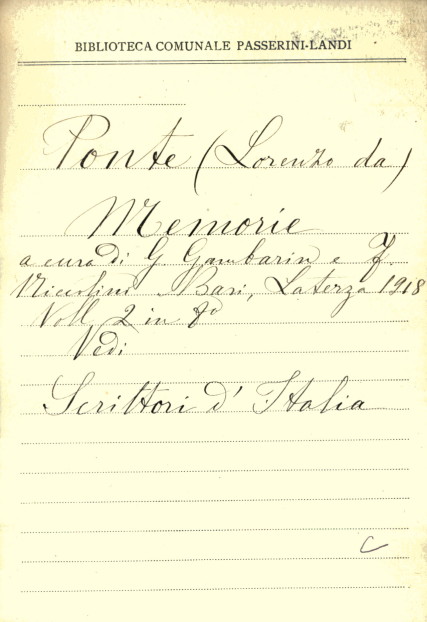 BIBLIOTECA COMUNALE PASSERINI-LANDI
Ponte (Lorenzo da)
Memorie
a cura di G Gambarin e F.
Niccolini Bari, Laterza 1918
Voll. 2 in 8º
Vedi
Scrittori d' Italia
C